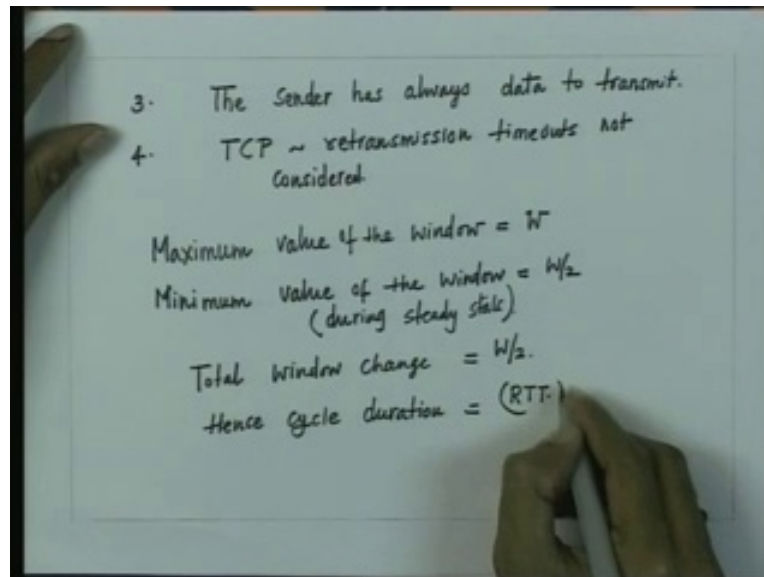 3. The Sender has always data to transmit.
4. TCP ~ retransmission timeouts not
considered
Maximum value of the window = W
Minimum value of the window = W/2
(during steady state)
Total window change = W/2.
Hence cycle duration = (RTT.)